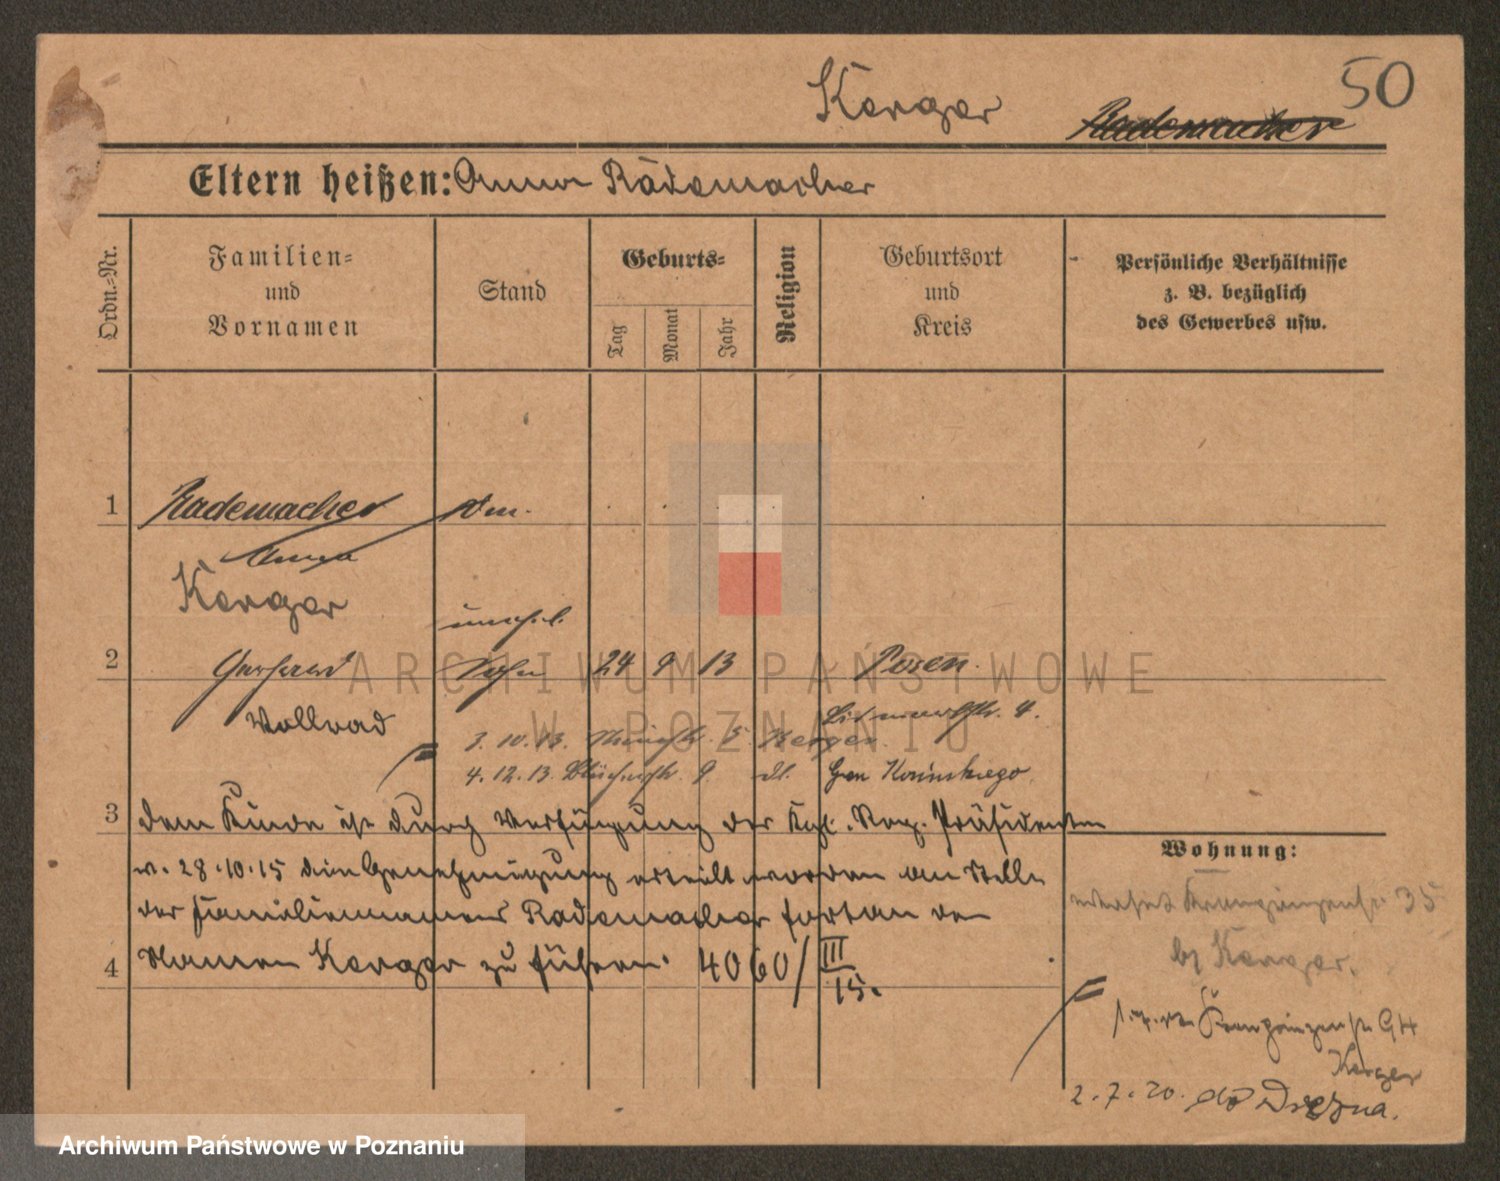 50
Kerger Rademacher
Eltern heißen: Anna Rademacher
Ordn.-Nr.
Familien-
und
Vornamen
Stand
Geburts-
Tag
Monat
Jahr
Religion
Geburtsort
und
Kreis
Persönliche Verhältnisse
z. B. bezüglich
des Gewerbes usw.
1 Rademacher
Anna
Kerger
unehel.
2 Gerhard Sohn 24 9 13 Posen.
Vollrad
3. 10. 13. 5 Kerger.
4. 12. 13. 9. Gen Kosinskiego
3 dem Kinde ist durch Verfügung des Kgl. Reg. Präsidenten
v. 28.10.15 die Genehmigung erteilt worden an Stelle
des Familiennamens Rademacher fortan den
4 Namen Kerger zu führen. 4060/III
15.
Wohnung:
Kronprinzenstr. 35
bei Kerger.
Kronprinzenstr. 94
Kerger
2.7.20. do Drezna.
ARCHIWUM PAŃSTWOWE
W POZNANIU
Archiwum Państwowe w Poznaniu